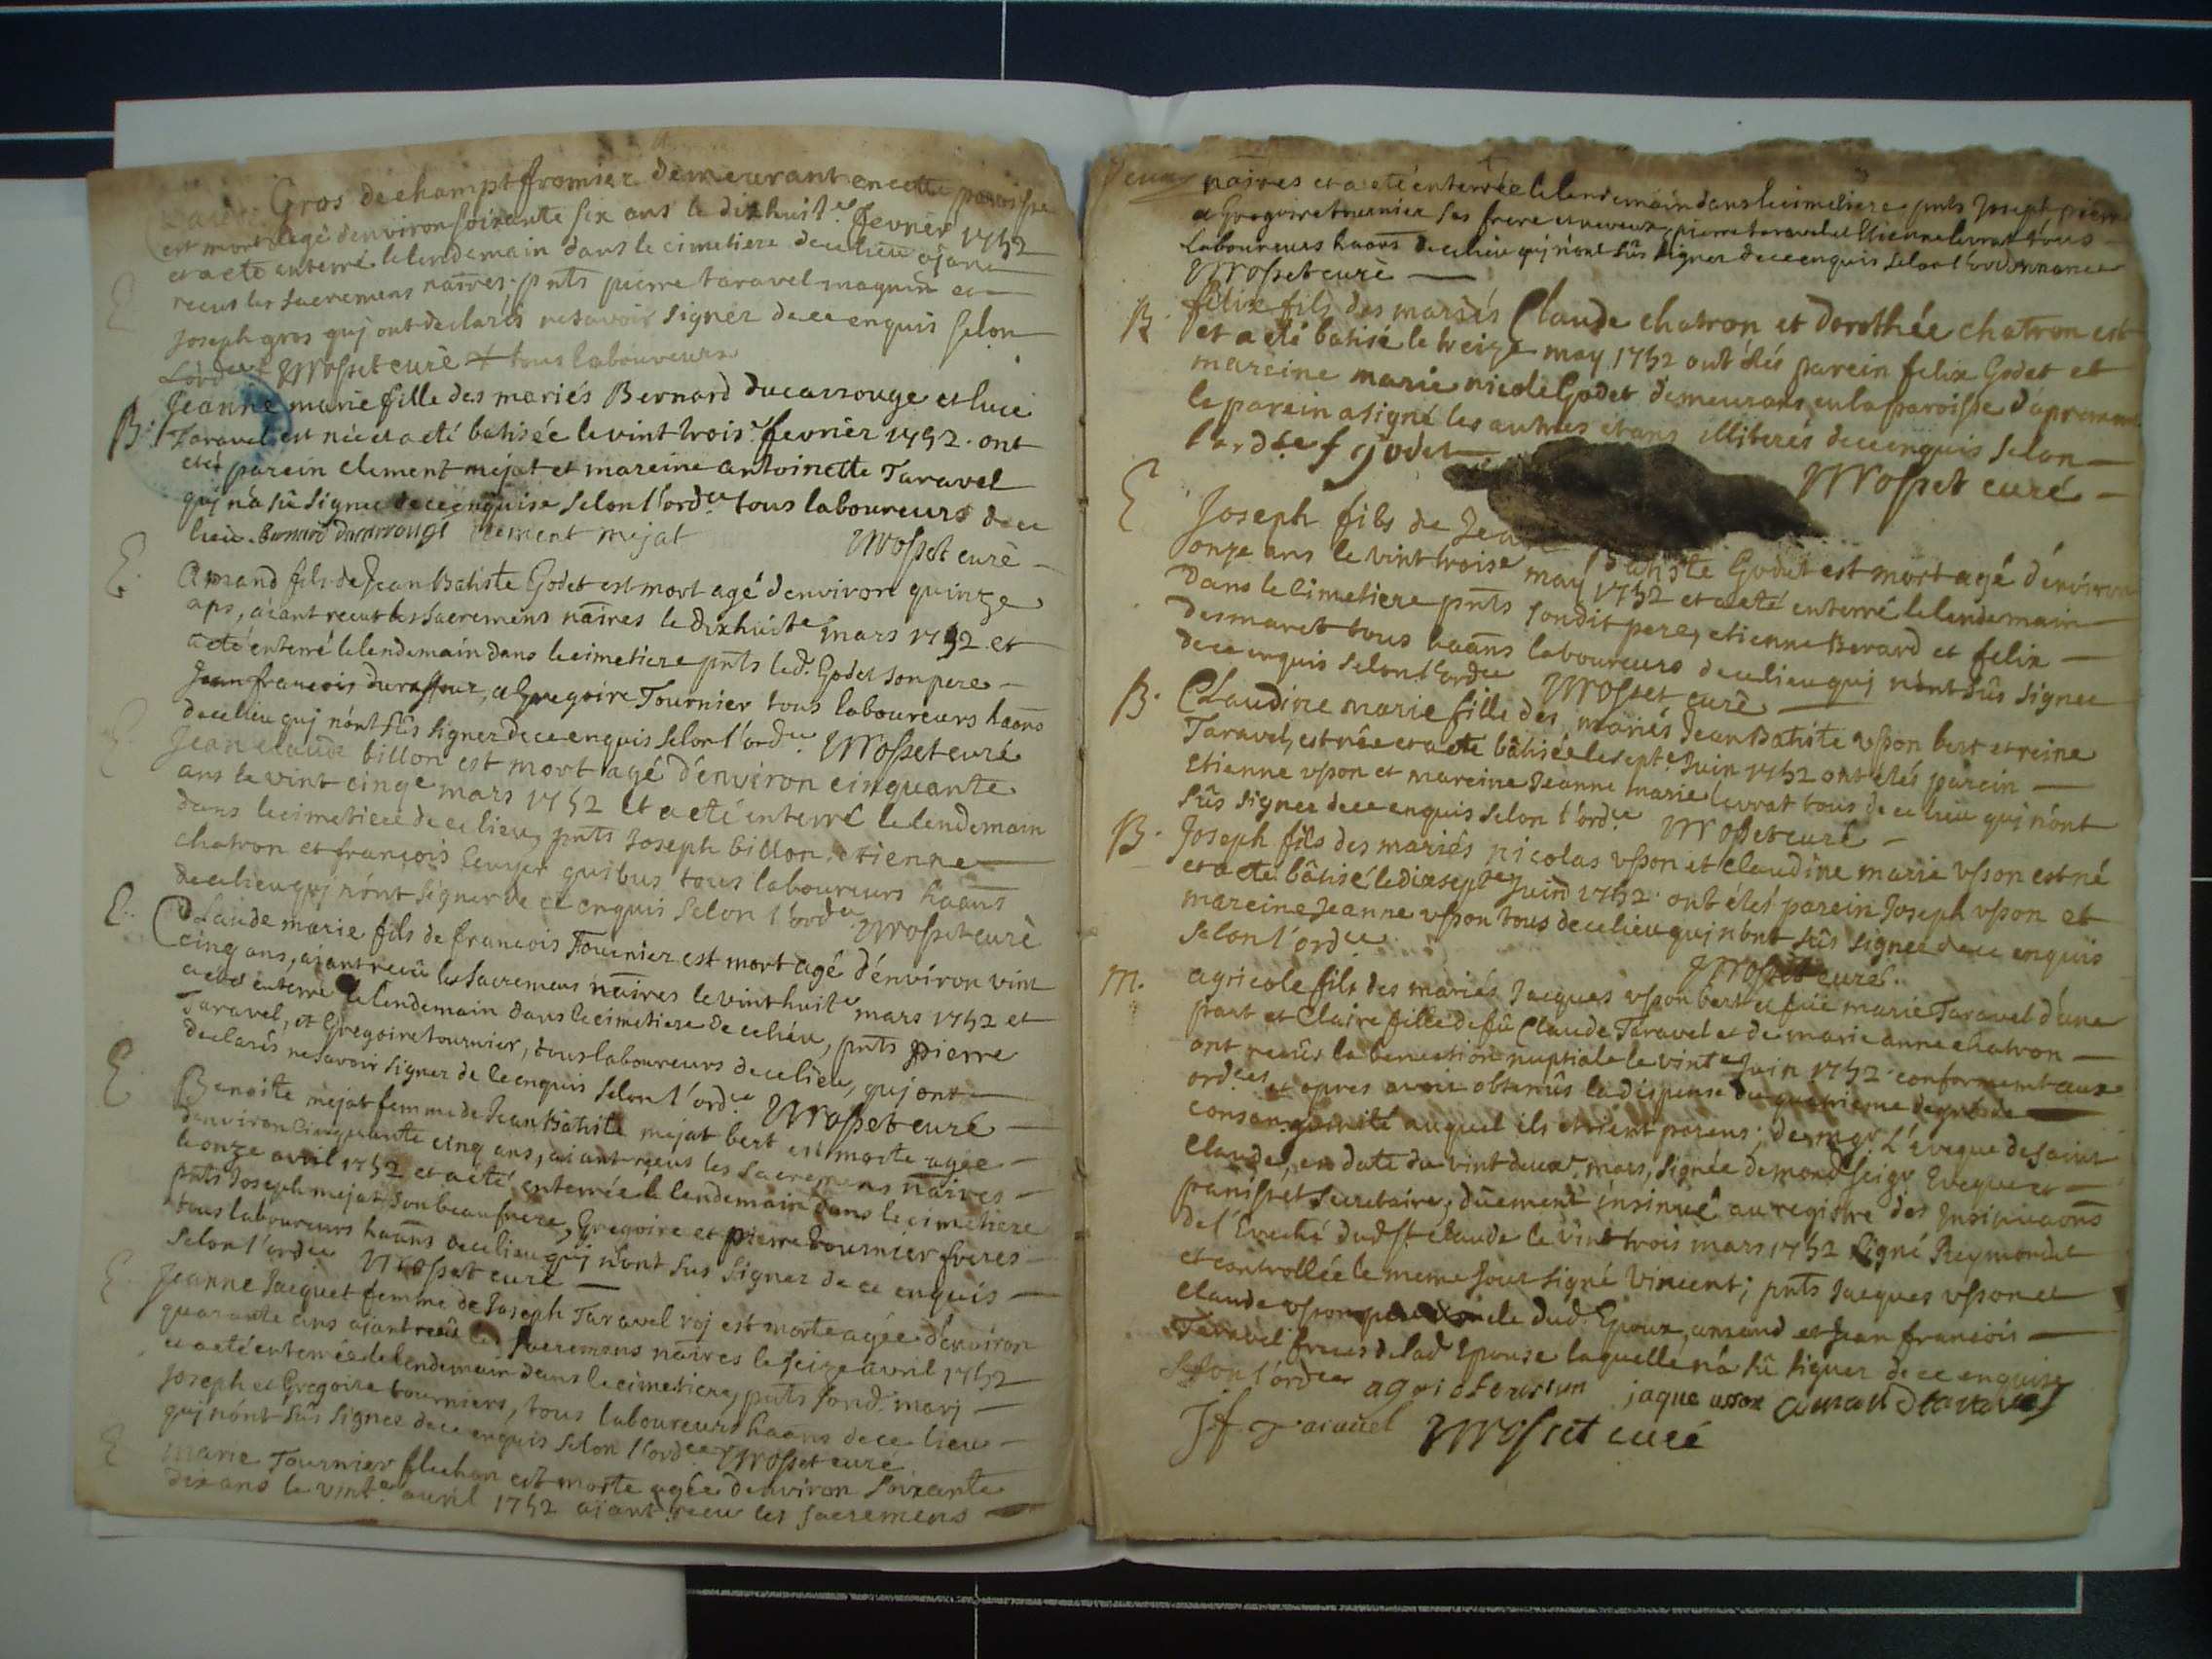 Gros dechampt fromier demeurant en cette paroisse
est mort agé d'environ soixante six ans le dixhuit.e fevrier 1752
et a eté enterré le lendemain dans le cimetiere de ce lieu aiant
E receus les sacremens naires, pnts pierre taravel magnin et
Joseph gros qui ont declarés ne savoir signer de ce enquis selon
l'ord.ce Mosset curé + tous laboureurs
B. Jeanne marie fille des mariés Bernard ducarrouge et luce
Taravel est née et a eté batisée le vint trois.e fevrier 1752. ont
etés parein clement mejat et mareine antoinette Taravel
qui n'a sû signer de ce enquise selon l'ord.ce tous laboureurs de ce
lieu. Bernard ducarrouge clement mejat Mosset curé
E. Amand fils de Jean Batiste Godet est mort agé d'environ quinze
ans, aiant receut les sacremens naires le dixhuit.e mars 1752 et
a eté enterré le lendemain dans le cimetiere pnts led. Godet son pere
Jean francois duraffour, a Gregoire Tournier tous laboureurs haans
de ce lieu qui n'ont sûs signer de ce enquis selon l'ord.ce Mosset curé
E. Jean claude billon est mort agé d'environ cinquante
ans le vint cinq.e mars 1752 et a eté enterré le lendemain
dans le cimetiere de ce lieu, pnts Joseph billon, etienne
chatron et francois quibus tous laboureurs haans
de ce lieu qui n'ont signer de ce enquis selon l'ord.ce Mosset curé
E. Claude marie fils de francois Tournier est mort agé d'environ vint
cinq ans, aiant receû les sacremens naires le vint huit.e mars 1752 et
a eté enterré le lendemain dans le cimetiere de ce lieu, pnts pierre
Taravel, et Gregoire tournier, tous laboureurs de ce lieu, qui ont
declarés ne savoir signer de ce enquis selon l'ord.ce Mosset curé
E Benoite mejat femme de Jean Batiste mejat bert est morte agée
d'environ cinquante cinq ans, aiant receus les sacremens naires
le onze avril 1752 et a eté enterrée le lendemain dans le cimetiere
pnts Joseph mejat son beaufrere, Gregoire et pierre tournier freres
tous laboureurs haans de ce lieu qui n'ont sus signer de ce enquis
selon l'ord.ce Mosset curé
E. Jeanne Jacquet femme de Joseph Taravel roj est morte agée d'environ
quarante ans aiant receûs les sacremens naires le seize avril 1752
et a eté enterrée le lendemain dans le cimetiere, pnts sond. marj
Joseph et Gregoire tourniers, tous laboureurs haans de ce lieu
qui n'ont sûs signer de ce enquis selon l'ord.ce Mosset curé
E marie Tournier fluchon est morte agée d'environ soixante
dix ans le vint.e avril 1752 aiant receu les sacremens
naires et a eté enterrée le lendemain dans le cimetiere pnts Joseph, pierre
a Gregoire tournier ses frere et neveux, pierre taravel et Etienne levrat tous
laboureurs haans de ce lieu qui n'ont sûs signer de ce enquis selon l'ordonnance
Mosset curé
B. felix fils des mariés Claude chatron et dorothée chatron est
et a eté batisé le treize may 1752 ont étés parein felix Godet et
mareine marie nicole Godet demeurans en la paroisse d'apremont
le parein a signé les autres etans illiterés de ce enquis selon
l'ord.ce f godet Mosset curé
E Joseph fils de Jean Batiste Godet est mort agé d'environ
onze ans le vint trois.e may 1752 et a eté enterré le lendemain
dans le cimetiere pnts sondit pere, etienne Berard et felix
desmaret tous haans laboureurs de ce lieu qui n'ont sûs signer
de ce enquis selon l'ord.ce Mosset curé
B. Claudine marie fille des mariés Jean Batiste vsson bert et reine
Taravel, est née et a eté bâtisée le sept.e Juin 1752 ont étés parein
etienne vsson et mareine Jeanne marie levrat tous de ce lieu qui n'ont
sûs signer de ce enquis selon l'ord.ce Mosset curé
B. Joseph fils des mariés nicolas vsson et claudine marie vsson est né
et a eté bâtisé le dixsept.e Juin 1752 ont étés parein Joseph vsson et
mareine Jeanne vsson tous de ce lieu qui n'ont sûs signer de ce enquis
selon l'ord.ce Mosset curé.
M. agricole fils des mariés Jacques vsson bert et fuë marie Taravel d'une
part et Claire fille de fû Claude Taravel et de marie anne chatron
ont receûs la benection nuptiale le vint.e Juin 1752 conformement aux
ord.ces et apres avoir obtenûs la dispense du quatrieme degré de
consanguinité auquel ils etoient parens, de mgr. L'eveque de saint
claude, en date du vint deux.e mars, signée de mond. seigr Eveque et
panisset secretaire, düement insinué au registre des Insinuaons
de l'Eveché dud. st claude le vint trois mars 1752 signé Reymondet
et controllée le meme jour signé Vincent; pnts Jacques vsson et
Claude vsson dud. Epoux, amand et Jean francois
Taravel freres de lad Epouse laquelle n'a sû signer de ce enquise
selon l'ord.ce jaque usson amand taravel
J f Taravel Mosset curé